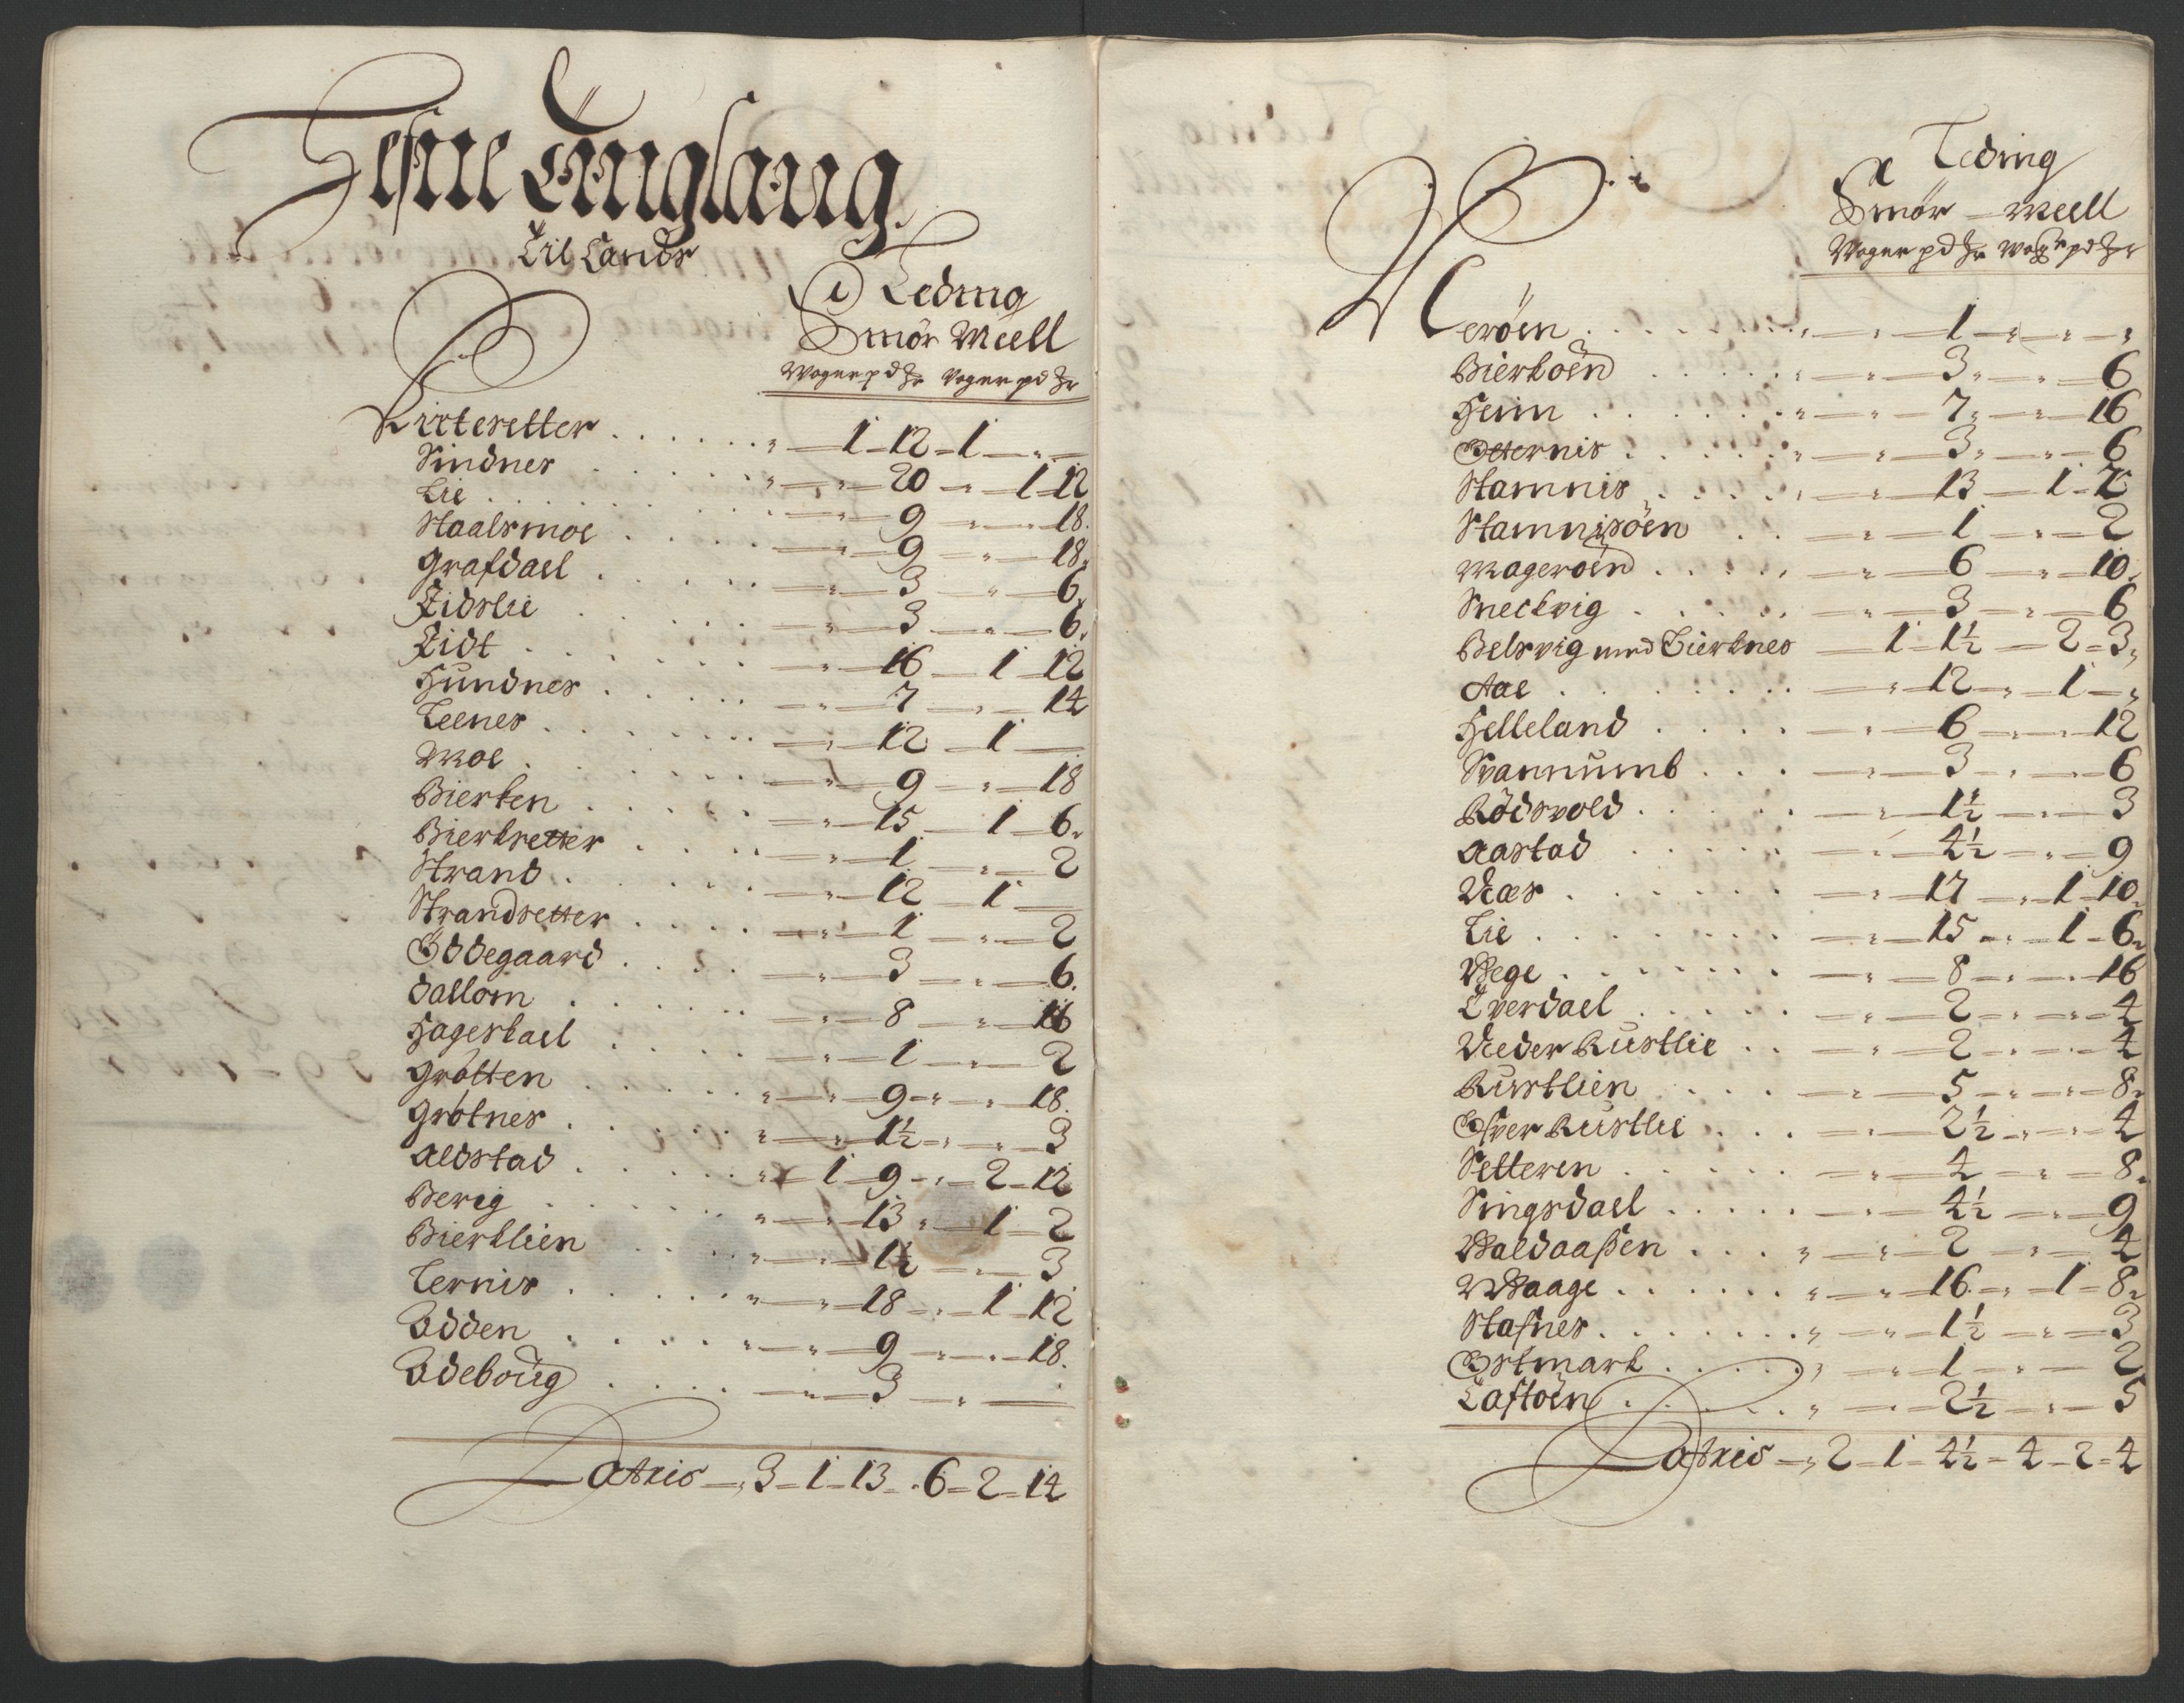 Hefne Tinglaug
Til Landz
I Teding
Smør Meell
Woger pd ℔r Voger pd ℔r
Kircksetter . . . . . . „ — 1 - 12 - 1 — „ —
Sindnes . . . . . „ — „ — 20 — „ — 1 - 12
Lie . . . . . . — „ — 9 — „ — 18.
Staalsmoe . . . . — „ — 9 — „ — 18.
Grafdael . . . . . — „ — 3 — „ — 6.
Lidslie . . . . . — „ — 3 — „ — 6.
Lidt . . . . . . — „ — 16 — 1 - 12
Hundnes . . . . . — „ — 7 — „ — 14
Leenes . . . . . — „ — 12 — 1 —
Moe . . . . . . — „ — 9 — „ — 18
Bierken . . . . . — „ — 15 — 1 — 6.
Bierksetter . . . . — „ — 1 — „ — 2
Strand . . . . . — „ — 12 — 1 —
Strandsetter . . . . — „ — 1 — „ — 2
Ødegaard . . . . — „ — 3 — „ — 6.
Dallom . . . . . — „ — 8 — „ — 16
Hagerkael . . . . — „ — 1 — „ — 2
Grøtten . . . . . „ — „ — 9 — „ — 18.
Grøtnes . . . . . „ — „ — 1½ — „ — 3
Aldstad . . . . . „ — 1 — 9 — „ — 2 - 12
Berig . . . . . . „ — „ — 13 „ — 1 — 2
Bierklien . . . . „ — „ — 1½ — „ — 3
Ternis . . . . . „ — „ — 18 — „ — 1 - 12
Odden . . . . . „ — „ — 9 — „ — 18.
Odeboug . . . . — „ — 3 — „ —
Latris — „ 3 — 1 — 13 — 6 — 2 — 14
I Teding
Smør — Meell
Woger pd ℔r Woger pd ℔r
Merøen . . . . . . „ — „ — 1 — „ — „ — „
Bierkøen . . . . . „ — „ — 3 „ — „ — 6
Heim . . . . . . „ — „ — 7 „ — „ — 16
Otternis . . . . . „ — „ — 3 „ — „ — 6
Stamnis . . . . . „ — „ — 13 — 1 - 2
Stamnisøen . . — „ — 1 — „ — 2
Magerøen . . . . . — „ — 6 — „ — 10.
Sneckvig . . . . . — „ — 3 — „ — 6
Belsvig med Bierknes — 1 — 1½ — 2 — 3 „
Aae . . . . . . . — „ — 12 — „ — 1 — „
Helleland . . . . — „ — 6 — „ — 12
Svannumb . . . — „ — 3 — „ — 6
Rødsvold . . . . . — „ — 1½ — „ — 3
Aastad . . . . . — „ — 4½ — „ — 9
Næs . . . . . . — „ — 17 — „ — 1 - 10.
Lie . . . . . . . — „ — 15 — „ — 1 — 6.
Wege . . . . . . — „ — 8 — „ — 16
Tverdael . . . . . — „ — 2 — „ — 4
Neder Rustlie . . — „ — 2 — „ — 4
Rustlien . . . . — „ — 5 — „ — 8.
Ofver Rustlie . . . — „ — 2½ — „ — 4
Setteren . . . . . — „ — 4 — „ — 8.
Singsdael . . . . . — „ — 4½ — „ — 9
Waldaassen . . . „ — „ — 2 — „ — 4
Waage . . . . . . „ — „ — 16. — „ — 1 — 8.
Stafnes . . . . . . „ — „ — 1½ — „ — 3
Ostmark . . . . . „ — „ — 1 — „ — 2
Taftøen . . . . . „ — „ — 2½ — „ — 5
Latris — „ 2 — 1 — 4½ — 4 — 2 — 4